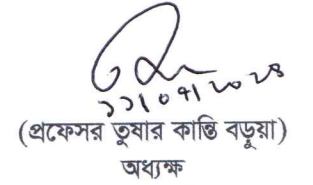 ১১/০৭/২০২৪
(প্রফেসর তুষার কান্তি বড়ুয়া)
অধ্যক্ষ